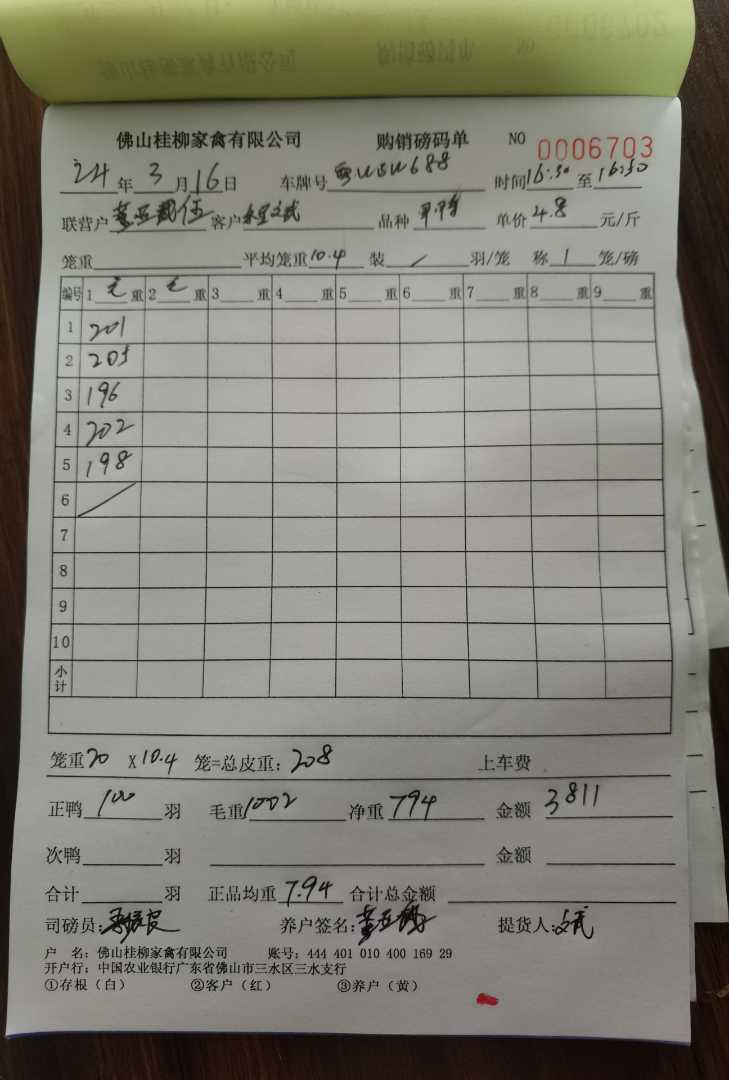 佛山桂柳家禽有限公司 购销磅码单 NO 0006703
24年3月16日 车牌号 688 时间16:30至16:50
联营户 客户 品种 单价4.8元/斤
笼重 平均笼重10.4 装/羽/笼 称1笼/磅
编号 1重 2重 3重 4重 5重 6重 7重 8重 9重
1 201
2 205
3 196
4 202
5 198
6 /
7
8
9
10
小计
笼重20X10.4笼=总皮重:208 上车费
正鸭100羽 毛重1002 净重794 金额3811
次鸭 羽 金额
合计 羽 正品均重7.94 合计总金额
司磅员: 养户签名: 提货人:文武
户 名:佛山桂柳家禽有限公司 账号:444 401 010 400 169 29
开户行:中国农业银行广东省佛山市三水区三水支行
①存根(白) ②客户(红) ③养户(黄)